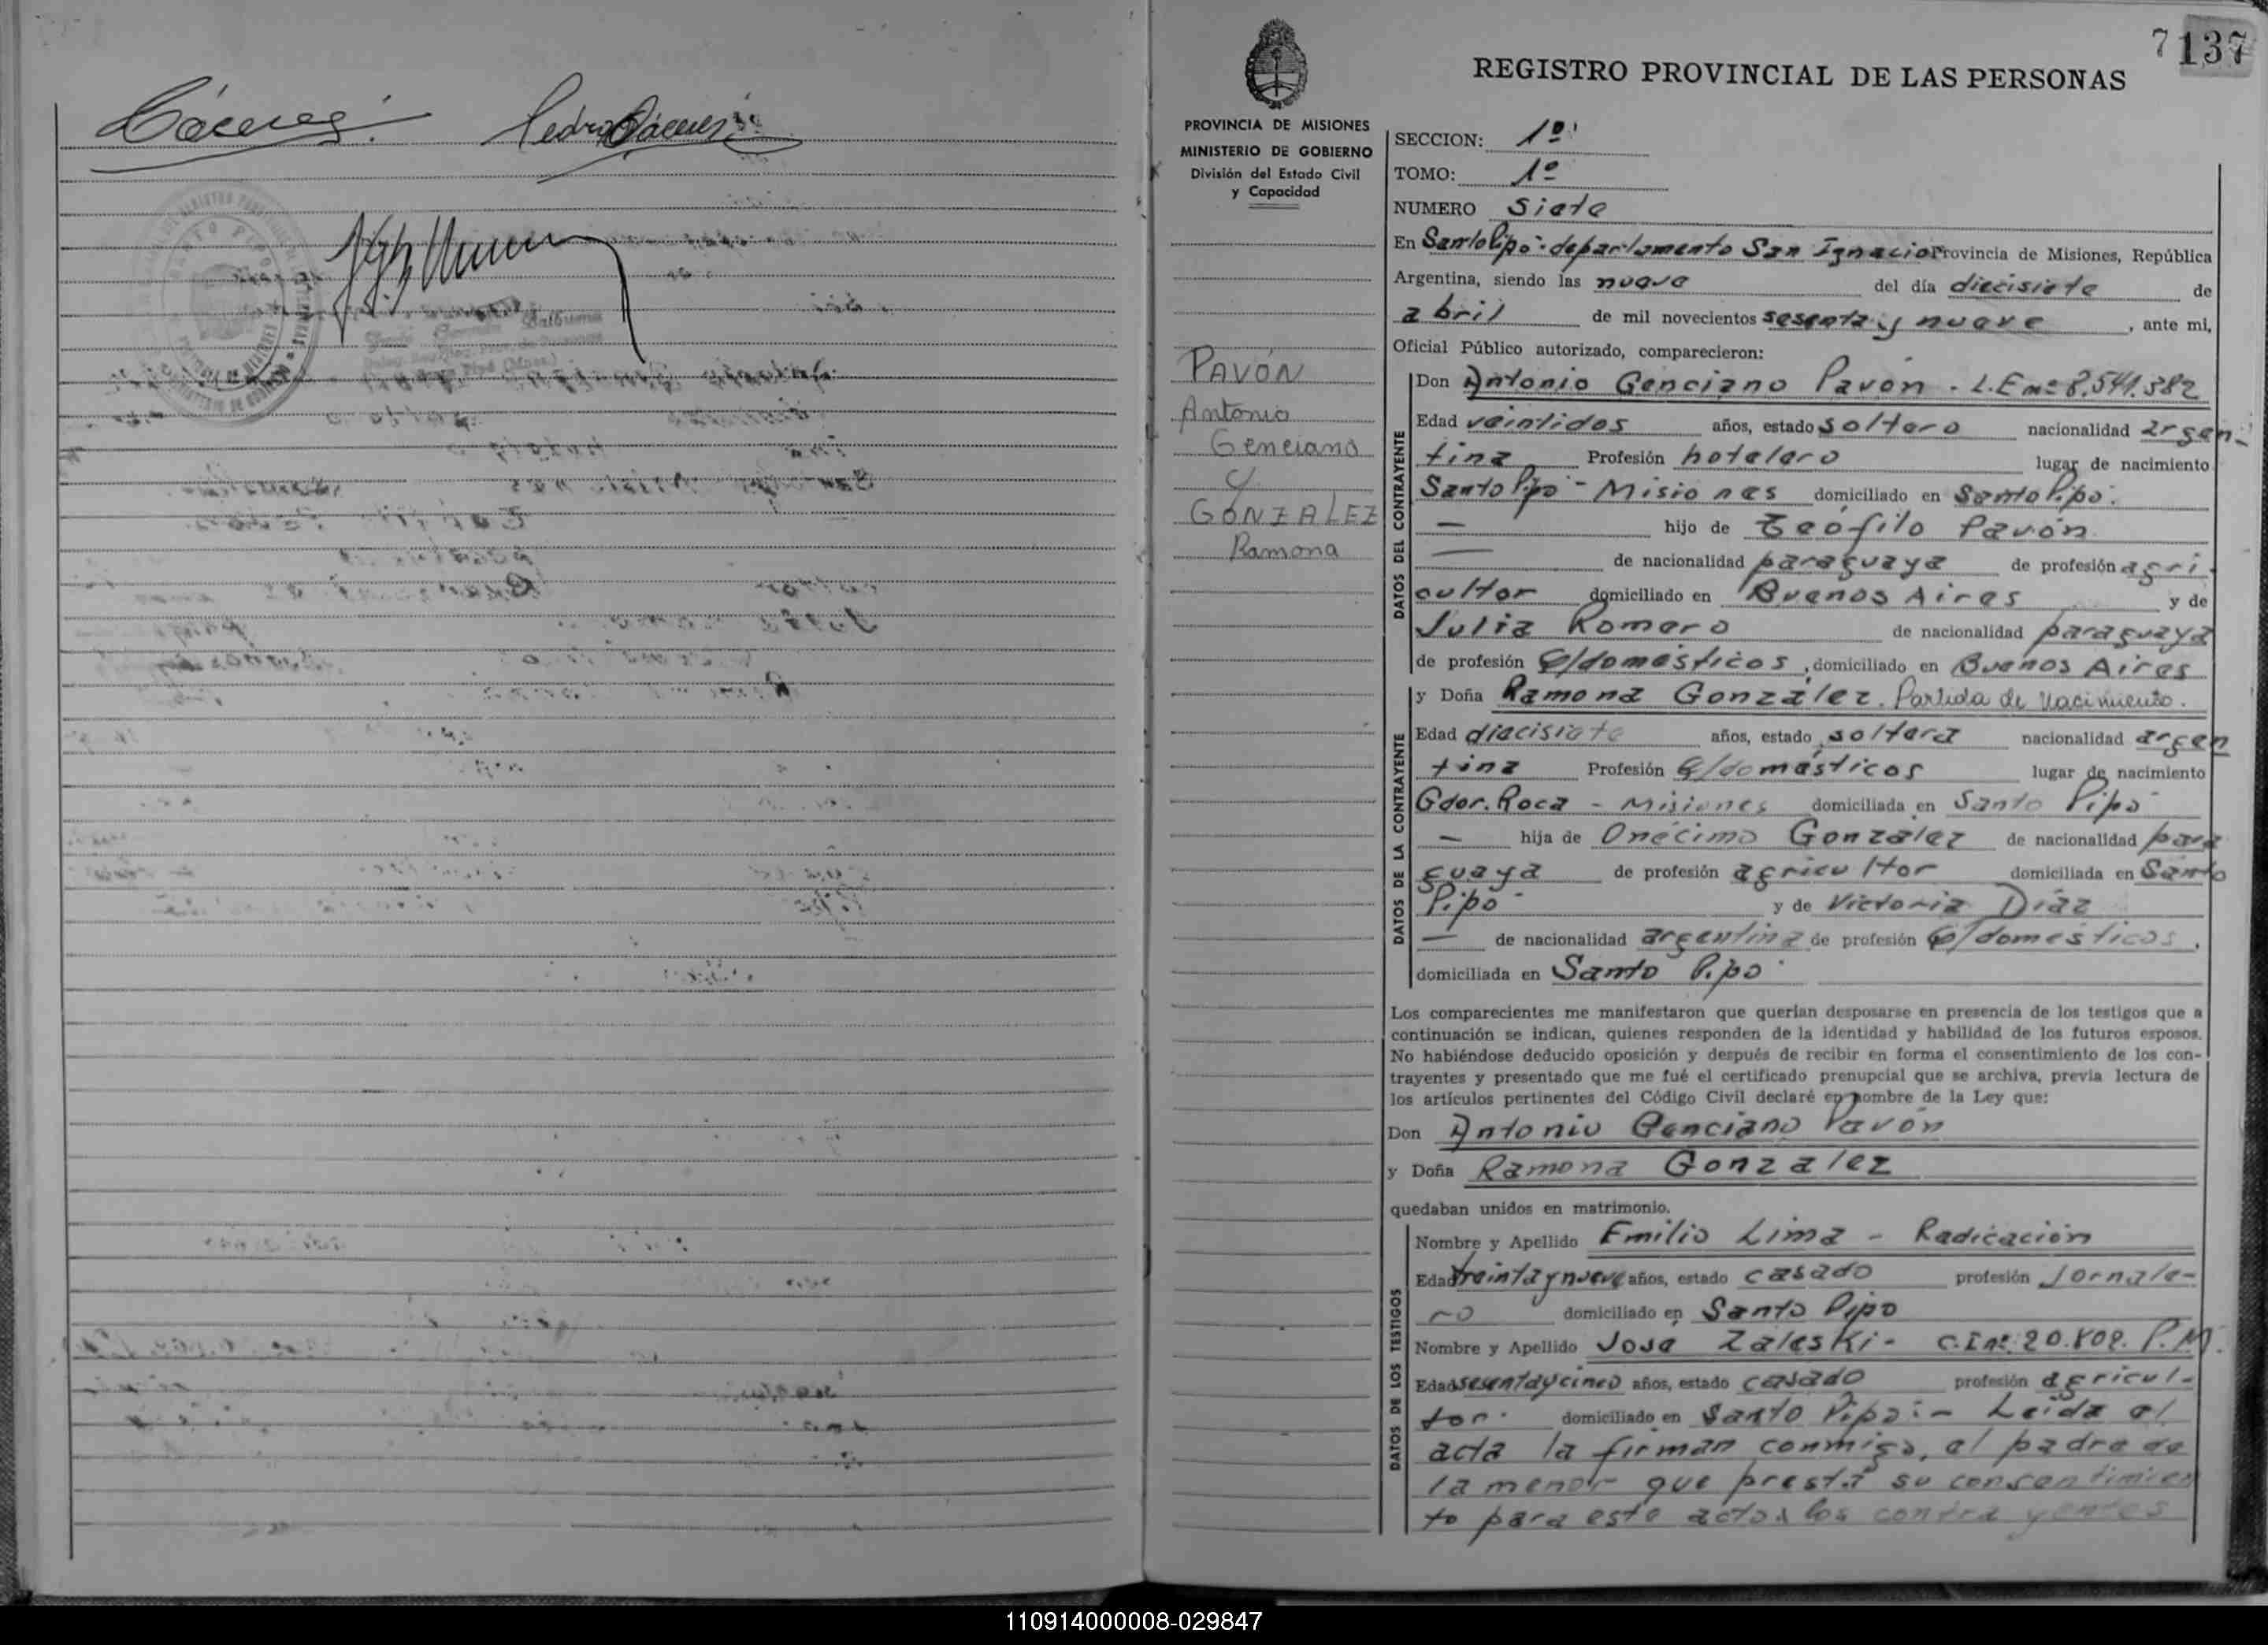 Cáceres. Pedro Cáceres
7 137
REGISTRO PROVINCIAL DE LAS PERSONAS
PROVINCIA DE MISIONES
MINISTERIO DE GOBIERNO
División del Estado Civil
y Capacidad
PAVÓN
Antonio
Genciano
y
GONZALEZ
Ramona
SECCION: 1º
TOMO: 1º
NUMERO Siete
En Santo Pipó - departamento San Ignacio Provincia de Misiones, República
Argentina, siendo las nueve del día diecisiete de
abril de mil novecientos sesenta y nueve, ante mi,
Oficial Público autorizado, comparecieron:
DATOS DEL CONTRAYENTE
Don Antonio Genciano Pavón - L.E nº 8.541.382
Edad veintidos años, estado soltero nacionalidad argen-
tina Profesión hotelero lugar de nacimiento
Santo Pipó - Misiones domiciliado en Santo Pipó.
— hijo de Teófilo Pavón
— de nacionalidad paraguaya de profesión agri-
cultor domiciliado en Buenos Aires y de
Julia Romero de nacionalidad paraguaya
de profesión Q/domésticos, domiciliado en Buenos Aires
DATOS DE LA CONTRAYENTE
y Doña Ramona González. Partida de Nacimiento.
Edad diecisiete años, estado soltera nacionalidad argen
tina Profesión Q/domésticos lugar de nacimiento
Gdor. Roca - Misiones domiciliada en Santo Pipó
— hija de Onécimo González de nacionalidad para
guaya de profesión agricultor domiciliada en Santo
Pipó y de Victoria Díaz
— de nacionalidad argentina de profesión Q/domésticos,
domiciliada en Santo Pipó
Los comparecientes me manifestaron que querían desposarse en presencia de los testigos que a
continuación se indican, quienes responden de la identidad y habilidad de los futuros esposos.
No habiéndose deducido oposición y después de recibir en forma el consentimiento de los con-
trayentes y presentado que me fué el certificado prenupcial que se archiva, previa lectura de
los artículos pertinentes del Código Civil declaré en nombre de la Ley que:
Don Antonio Genciano Pavón
y Doña Ramona González
quedaban unidos en matrimonio.
DATOS DE LOS TESTIGOS
Nombre y Apellido Emilio Lima - Radicación
Edad treinta y nueve años, estado casado profesión Jornale-
ro domiciliado en Santo Pipó
Nombre y Apellido José Zaleski - C.I nº 20.802. P.M.
Edad sesenta y cinco años, estado casado profesión agricul-
tor. domiciliado en Santo Pipó: - Leída el
acta la firman conmigo, el padre de
la menor que presta su consentimien
to para este acto, los contrayentes
110914000008-029847